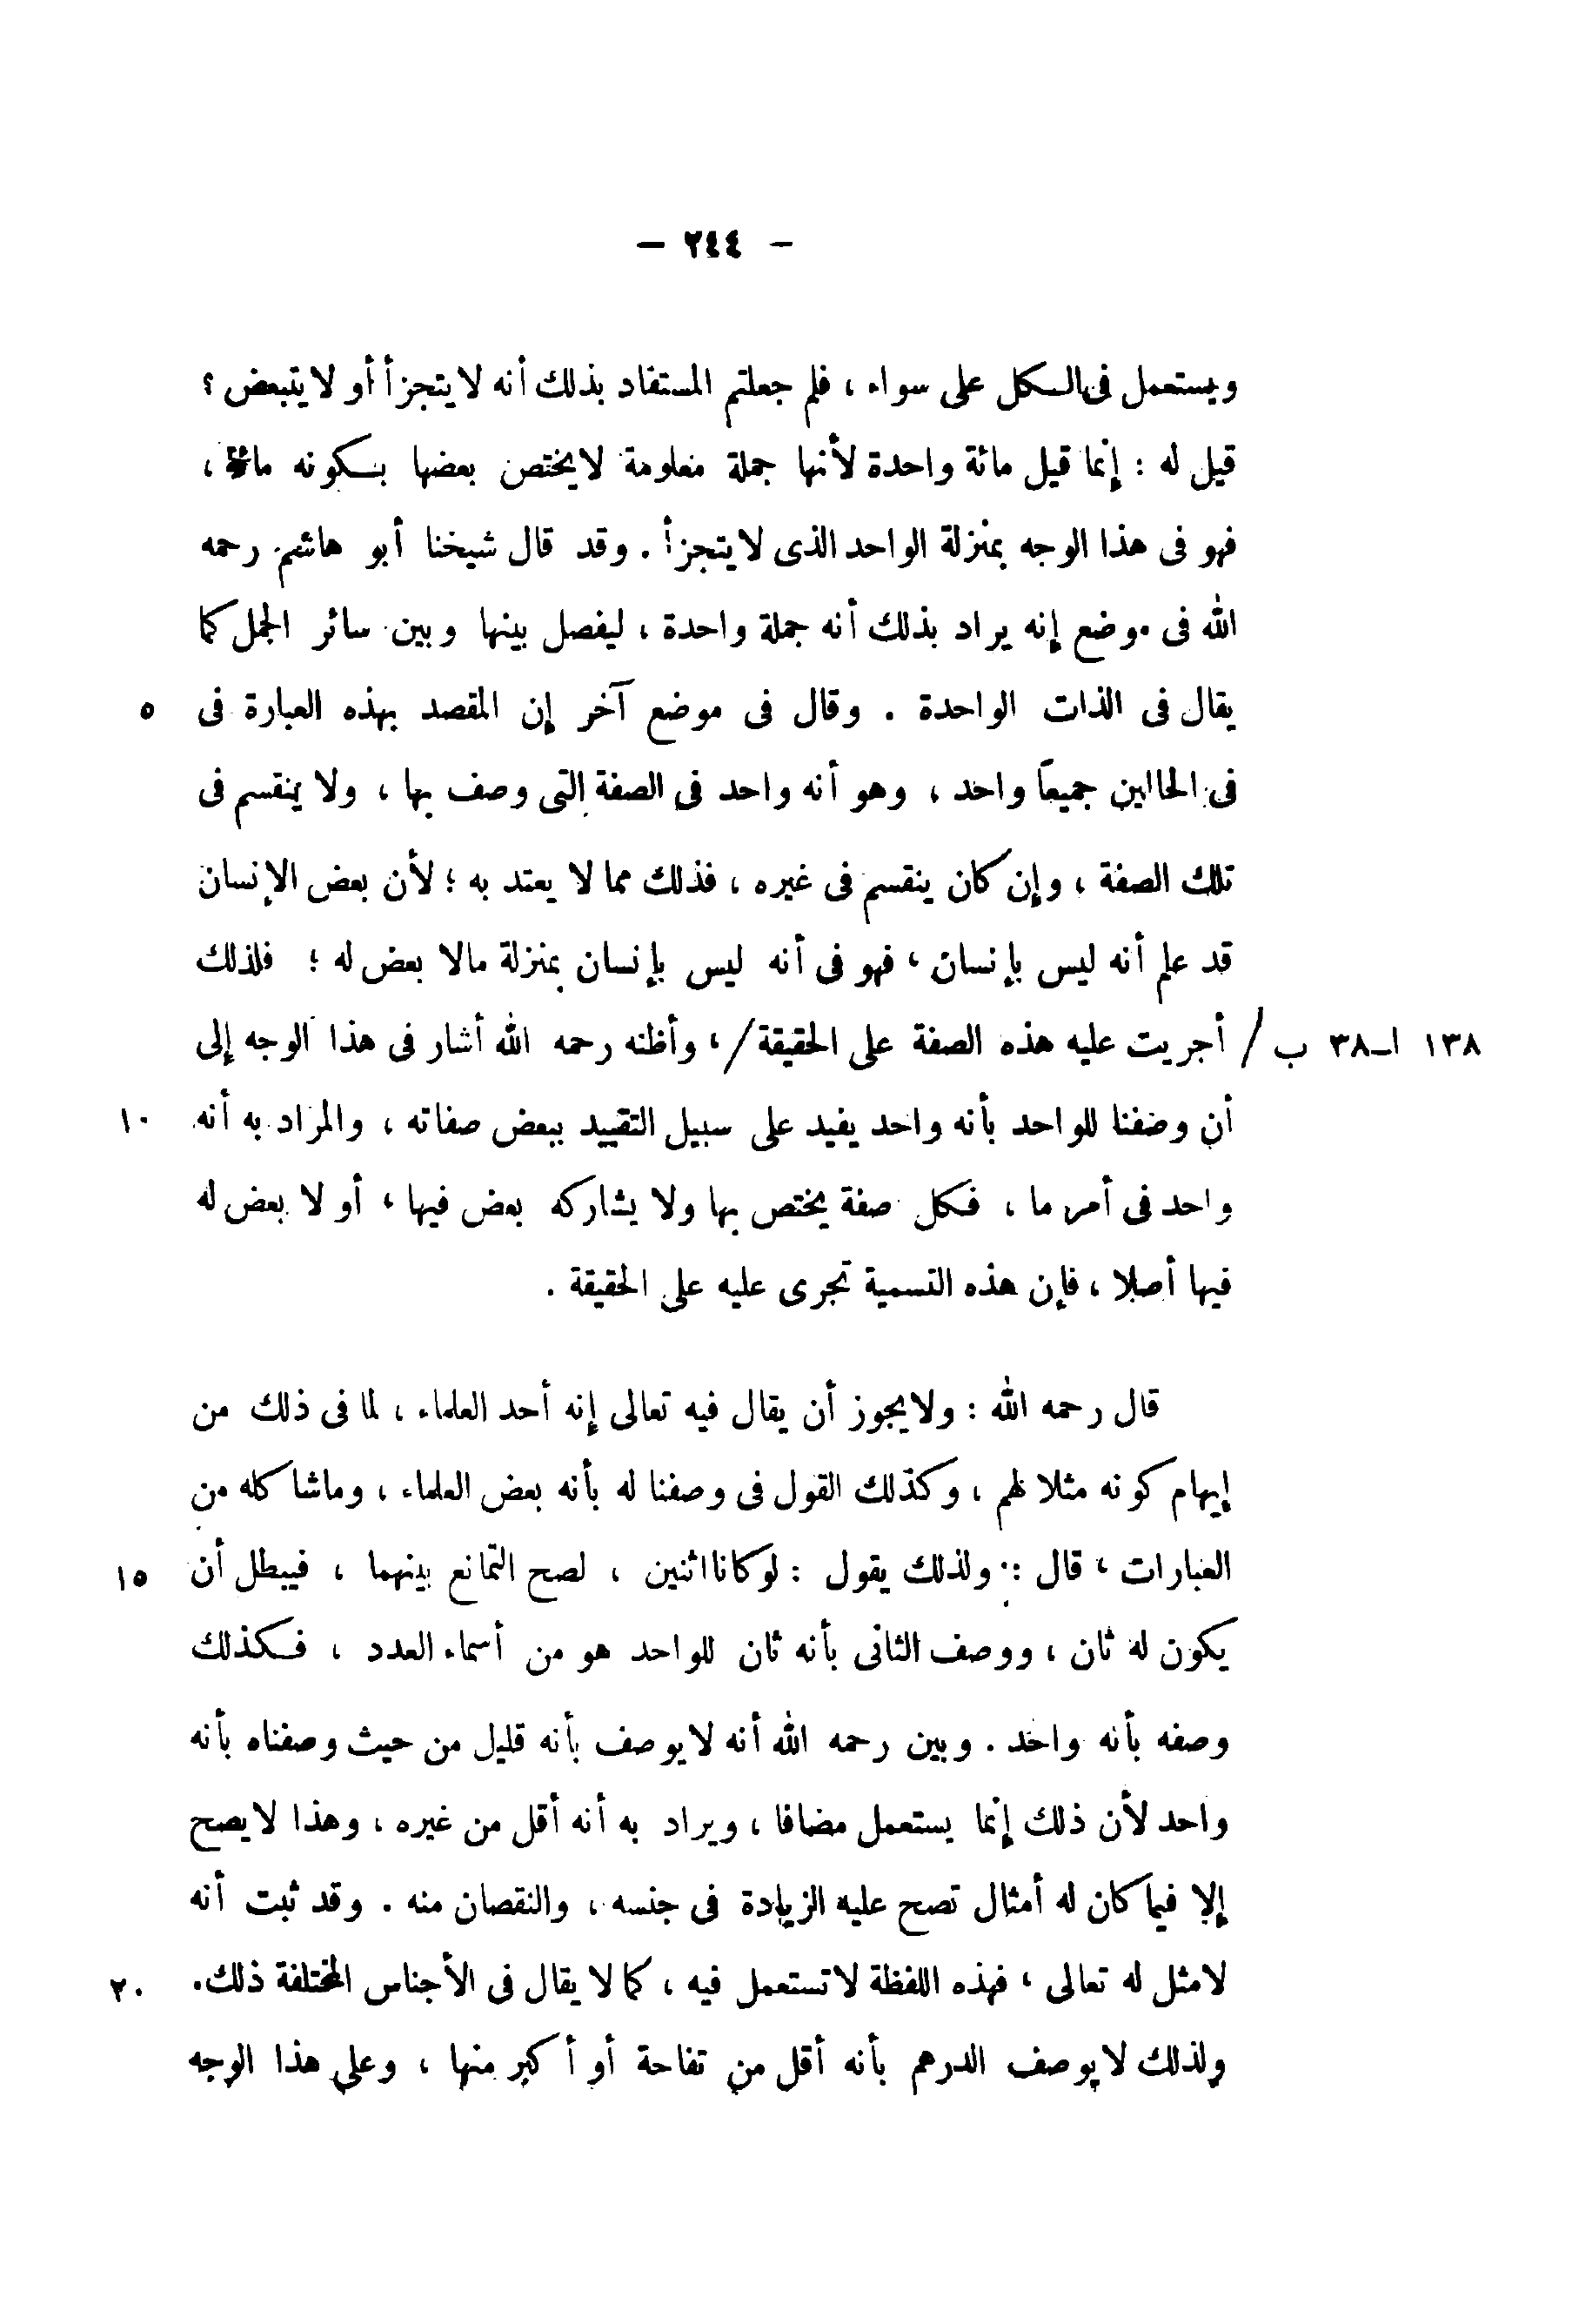 — ٢٤٤ —
ويستعمل فى الكل على سواء ، فلم جعلتم المستفاد بذلك أنه لا يتجزأ أو لا يتبعض ؟
قيل له : إنما قيل مائة واحدة لأنها جملة معلومة لا يختص بعضها بكونه مائة ،
فهو فى هذا الوجه بمنزلة الواحد الذى لا يتجزأ . وقد قال شيخنا أبو هاشم رحمه
الله فى موضع إنه يراد بذلك أنه جملة واحدة ، ليفصل بينها وبين سائر الجمل كما
يقال فى الذات الواحدة . وقال فى موضع آخر إن المقصد بهذه العبارة فى ٥
فى الحالين جميعاً واحد ، وهو أنه واحد فى الصفة التى وصف بها ، ولا ينقسم فى
تلك الصفة ، وإن كان ينقسم فى غيره ، فذلك مما لا يعتد به ؛ لأن بعض الإنسان
قد علم أنه ليس بإنسان ، فهو فى أنه ليس بإنسان بمنزلة مالا بعض له ؛ فلذلك
١٣٨ ا ــ ٣٨ ب / أجريت عليه هذه الصفة على الحقيقة / ، وأظنه رحمه الله أشار فى هذا الوجه إلى
أن وصفنا للواحد بأنه واحد يفيد على سبيل التقييد ببعض صفاته ، والمراد به أنه ١٠
واحد فى أمر ما ، فكل صفة يختص بها ولا يشاركه بعض فيها ، أو لا بعض له
فيها أصلا ، فإن هذه التسمية تجرى عليه على الحقيقة .
قال رحمه الله : ولا يجوز أن يقال فيه تعالى إنه أحد العلماء ، لما فى ذلك من
إيهام كونه مثلا لهم ، وكذلك القول فى وصفنا له بأنه بعض العلماء ، وماشاكله من
العبارات ، قال : ولذلك يقول : لو كانا اثنين ، لصح التمانع بينهما ، فيبطل أن ١٥
يكون له ثان ، ووصف الثانى بأنه ثان للواحد هو من أسماء العدد ، فكذلك
وصفه بأنه واحد . وبين رحمه الله أنه لا يوصف بأنه قليل من حيث وصفناه بأنه
واحد لأن ذلك إنما يستعمل مضافا ، ويراد به أنه أقل من غيره ، وهذا لا يصح
إلا فيما كان له أمثال تصح عليه الزيادة فى جنسه ، والنقصان منه . وقد ثبت أنه
لا مثل له تعالى ، فهذه اللفظة لا تستعمل فيه ، كما لا يقال فى الأجناس المختلفة ذلك. ٢٠
ولذلك لا يوصف الدرهم بأنه أقل من تفاحة أو أكبر منها ، وعلى هذا الوجه